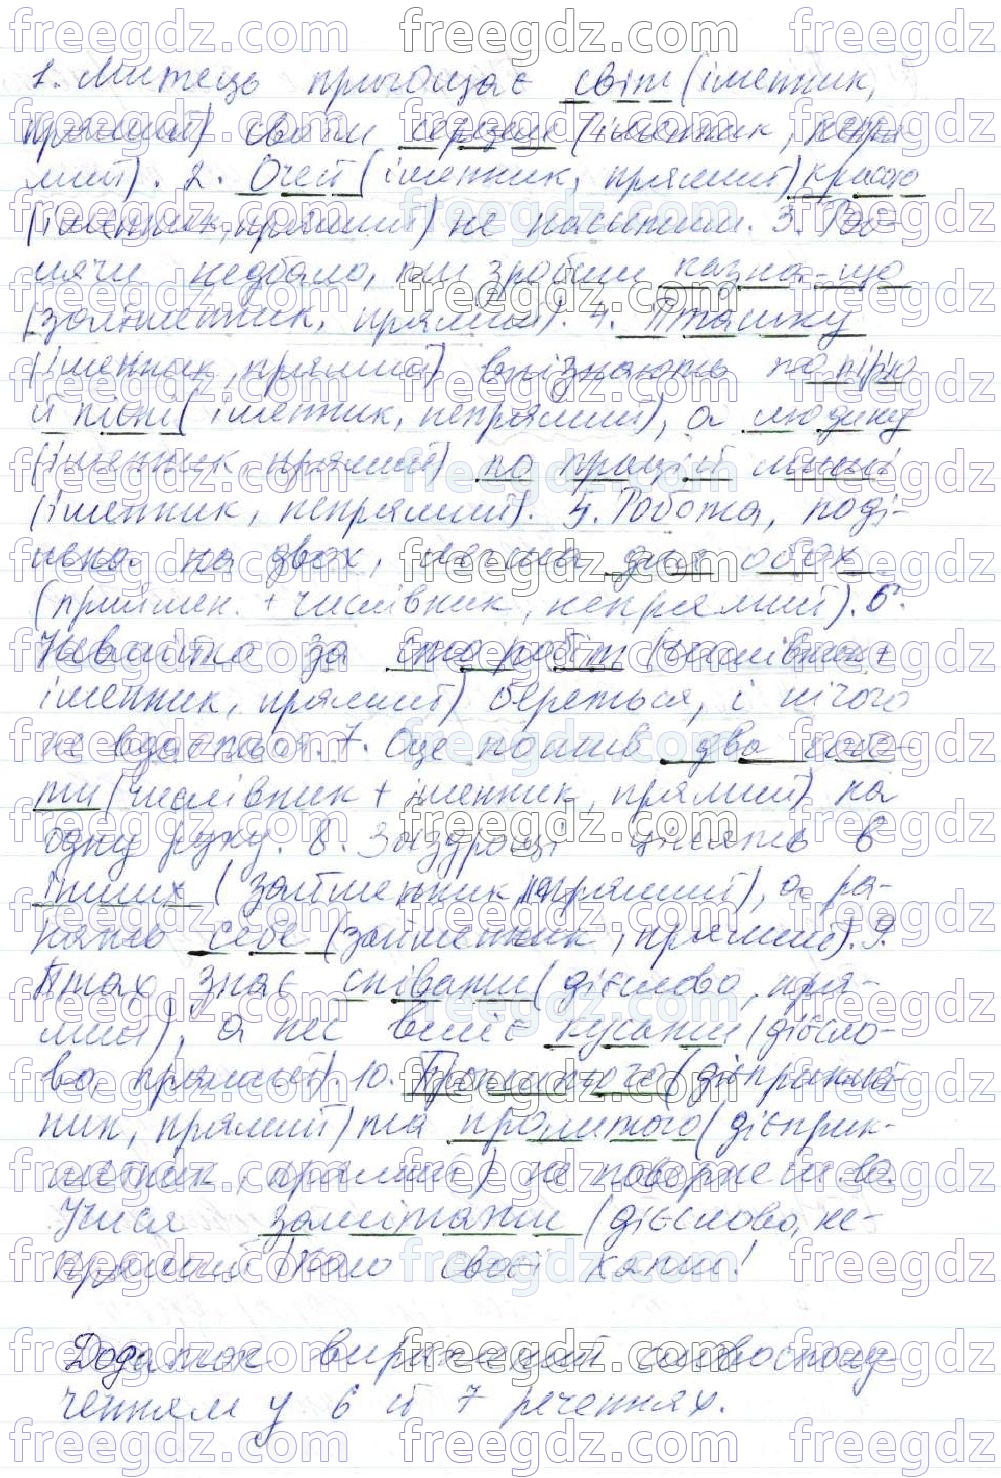 freegdz.com freegdz.com freegdz.com
1. Митець пригощає світ (іменник,
прямий) своїм серцем (іменник, непря-
мий). 2. Очей (іменник, прямий) красою
(іменник, прямий) не наситиш. 3. Роб-
лячи недбало, ти зробиш казна-що
(займенник, прямий). 4. Пташку
(іменник, прямий) впізнають по пір'ю
й пісні (іменник, непрямий), а людину
(іменник, прямий) по праці й мислі
(іменник, непрямий). 5. Робота, поді-
лена на двох, легша для обох
(приймен. + числівник, непрямий). 6.
за сто робіт (числівник +
іменник, прямий) береться, і нічого
не вдається. 7. Оце пошив два чобо-
ти (числівник + іменник, прямий) на
одну ногу. 8. Заздрощі цілять в
інших (займенник, непрямий), а ра-
нять себе (займенник, прямий). 9.
Птах знає співати (дієслово, пря-
мий), а не вміє кусати (дієсло-
во, прямий). 10. (дієприкмет-
ник, прямий) та пролитого (дієприк-
метник, прямий) не повернеш
Учися замітати (дієслово, не-
прямий) коло своєї хати!
Додаток виражений словосполу-
ченням у 6 й 7 реченнях.
freegdz.com freegdz.com freegdz.com